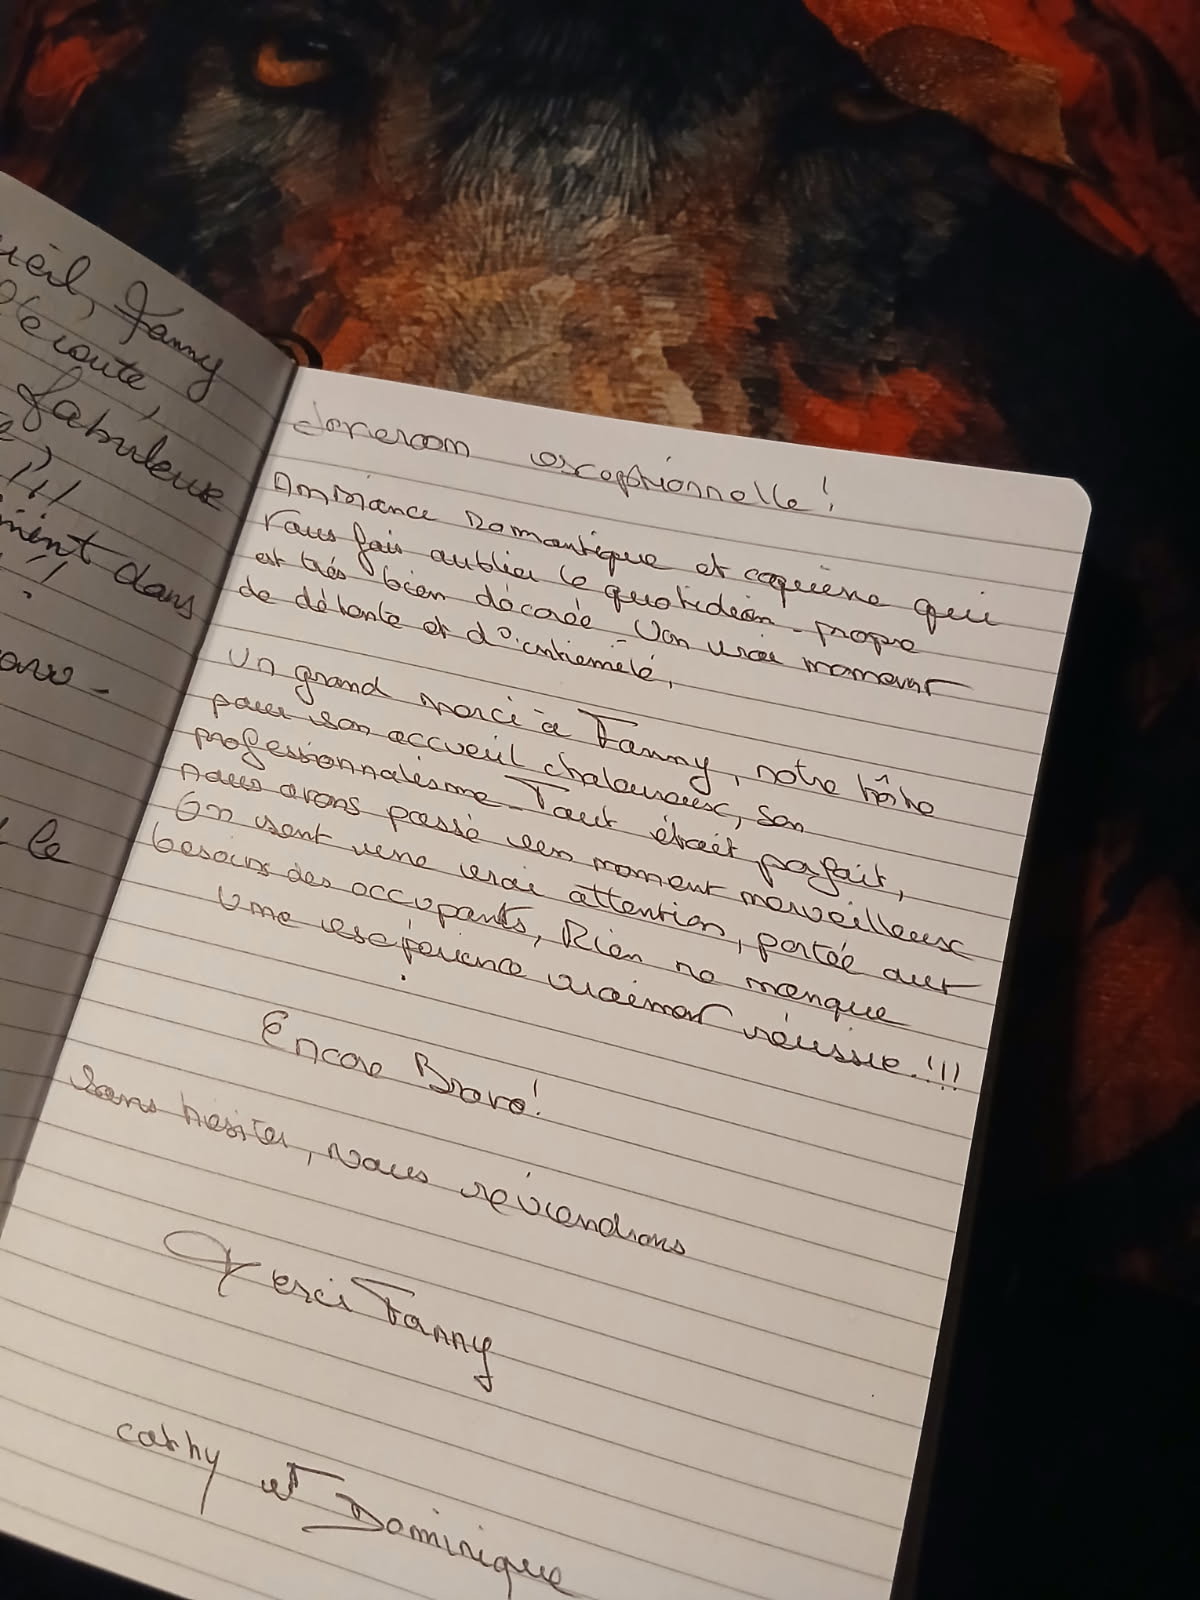 ueil, Fanny
écoute,
fabuleuse
!!!
ment dans
!!
le
Loveroom exceptionnelle !
Ambiance Romantique et coquine qui
vous fais oublier le quotidien - propre
et très bien décorée - Un vrai moment
de détente et d'intiemité,
Un grand merci à Fanny, notre hôte
pour son accueil chaleureux, son
professionnalisme - Tout était parfait,
nous avons passé un moment merveilleux
On sent une vrai attention, portée aux
besoins des occupants, Rien ne manque
Une expérience vraiment réussie.!!!
Encore Bravo !
Sans hésiter, nous reviendrons
Merci Fanny
Cathy et Dominique